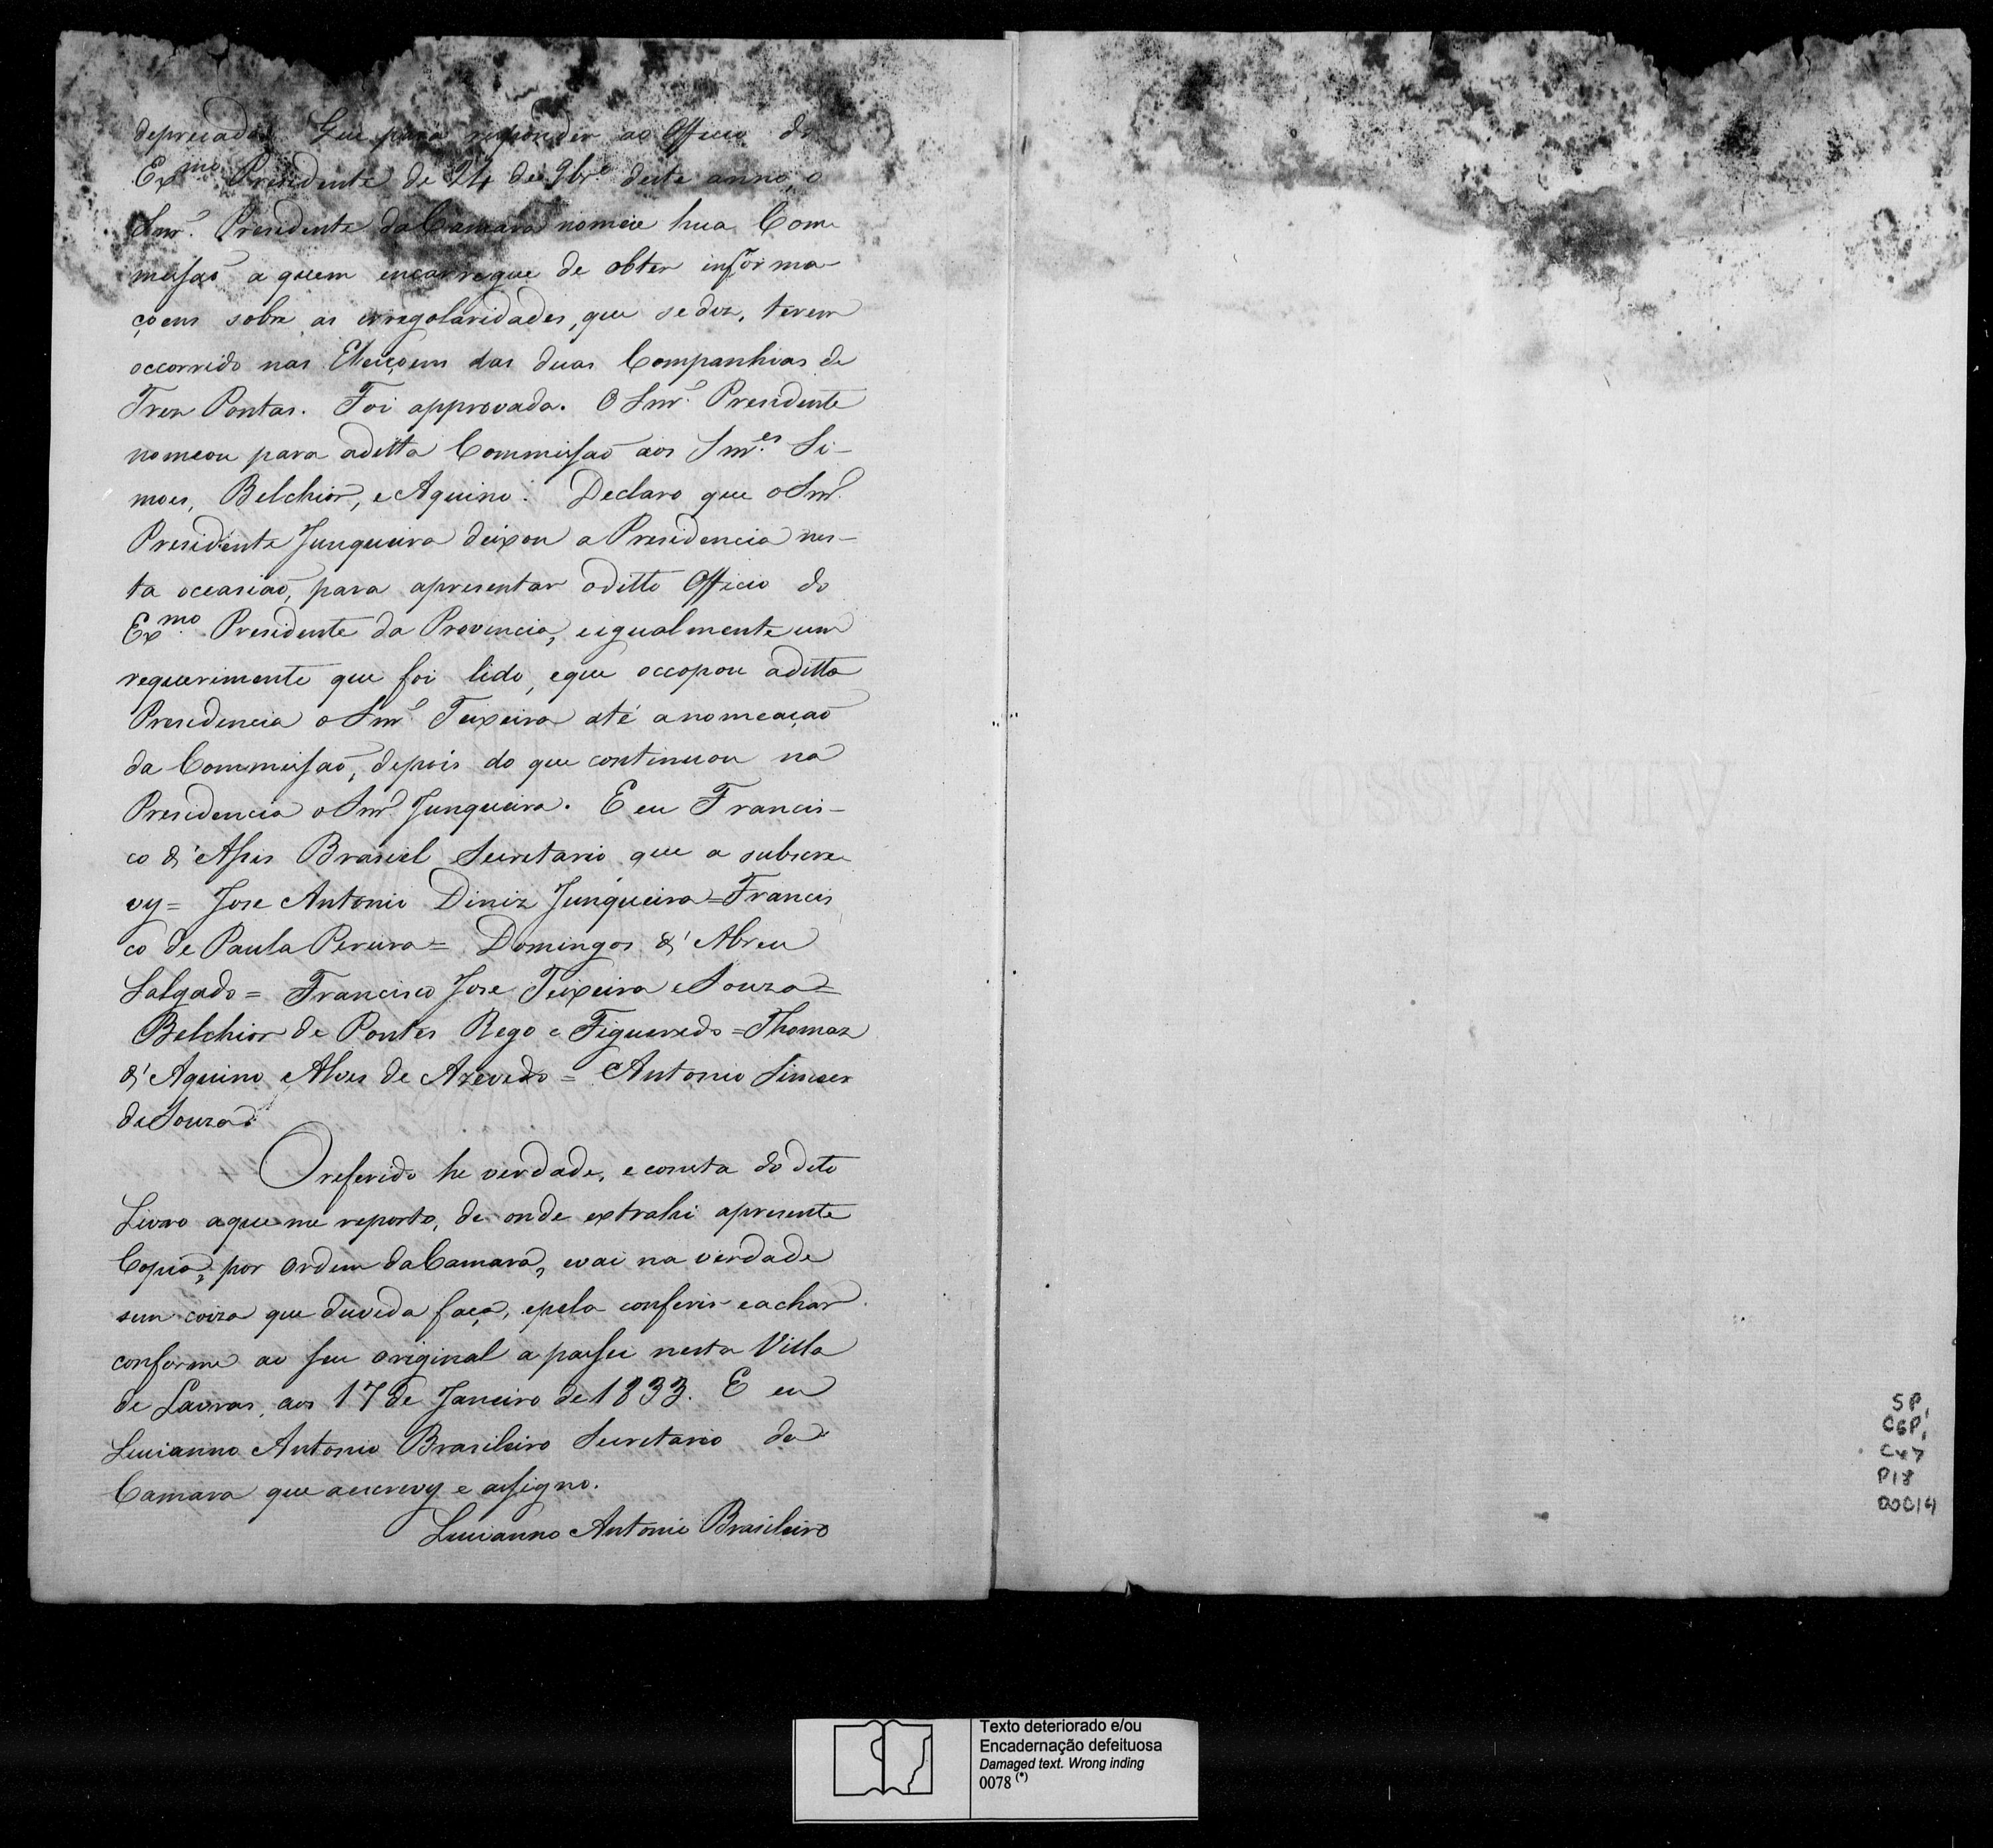 deprecada. Que para responder ao Officio do
Ex.mo Presidente de 24 de 9br.o deste anno, o
Snr. Presidente da Camara nomeie hua Com-
missaõ a quem encarregue de obter informa-
çoens sobre as irregolaridades, que se diz, terem
occorrido nas Eleiçoens das duas Companhias de
Trez Pontas. Foi approvada. O Snr. Presidente
nomeou para aditta Commissaõ aos Snr.es Si-
moes, Belchior, e Aquino. Declaro que o Snr.
Presidente Junqueira deixou a Presidencia nes-
ta occasiaõ, para apresentar oditto Officio do
Ex.mo Presidente da Provincia, eigualmente um
requerimento que foi lido, eque occopou aditta
Presidencia o Snr. Teixeira até anomeaçaõ
da Commissaõ, depois do que continuou na
Presidencia o Snr. Junqueira. E eu Francis-
co d'Assis Brasiel Secretario que a subscre-
vy = Jose Antonio Diniz Junqueira = Francis
co de Paula Pereira = Domingos d'Abreu
Salgado = Francisco Jose Teixeira e Souza =
Belchior de Pontes Rego e Figueredo = Thomaz
d'Aquino Alves de Azevedo = Antonio Simoes
de Souza.
O referido he verdade, e consta do dito
Livro aque me reporto, de onde extrahi apresente
Copia, por ordem da Camara, evai na verdade
sem coiza que duvida faça, epela conferir eachar
conforme ao seu original a passei nesta Villa
de Lavras, aos 17 de Janeiro de 1833. E eu
Lucianno Antonio Brasileiro Secretario da
Camara que aescrevy e assigno.
Lucianno Antonio Brasileiro
SP,
CGP,
Cx7
P18
00014
Texto deteriorado e/ou
Encadernação defeituosa
Damaged text. Wrong inding
0078 (*)